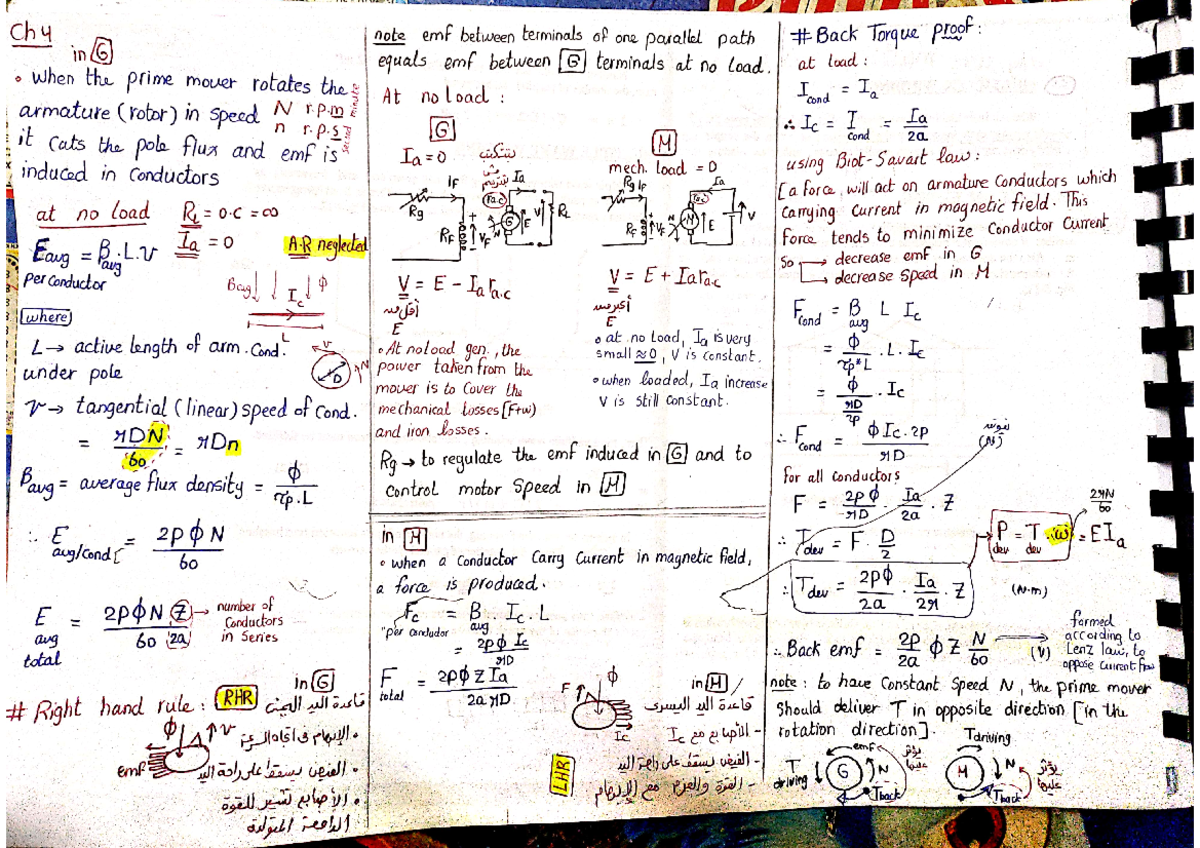 Ch 4
in G
• when the prime mover rotates the
armature (rotor) in speed N r.p.m minute
n r.p.s second
it cats the pole flux and emf is
induced in conductors
at no load RL = o.c = ∞
Ia = 0 A.R neglected
Eavg = Bavg . L . v
per conductor
Bavg ↓ ↓ Ic ↓ φ
L
where
L → active length of arm. cond.
under pole
v → tangential (linear) speed of cond.
= πDN / 60 = πDn
Bavg = average flux density = φ / τp . L
∴ E avg/cond = 2P φ N / 60
E avg total = 2P φ N Z / 60 2a → number of conductors in series
# Right hand rule : RHR in G قاعدة اليد اليمنى
φ v
emf
• الإبهام فى اتجاه الحركة
• الفيض يسقط على راحة اليد
• الأصابع تشير للقوة
الدافعة المتولدة
note emf between terminals of one parallel path
equals emf between G terminals at no load.
At no load :
G
Ia = 0
IF Ia
Rg RF VF G E V RL
V = E - Ia ra.c
أقل من
E
• At no load gen., the
power taken from the
mover is to cover the
mechanical losses [F+w]
and iron losses.
M
mech. load = 0
Rg IF Ia
RF VF M E V
V = E + Ia ra.c
أكبر من
E
• at no load, Ia is very
small ≈ 0, V is constant.
• when loaded, Ia increase
V is still constant.
Rg → to regulate the emf induced in G and to
control motor speed in M
in M
• when a conductor carry current in magnetic field,
a force is produced.
Fc = Bavg . Ic . L
"per conductor"
= 2P φ Ic / πD
F total = 2P φ Z Ia / 2a πD
F φ Ic
in M
قاعدة اليد اليسرى
- الأصابع مع Ic
- الفيض يسقط على راحة اليد
- القوة والعزم مع الإبهام
LHR
# Back Torque proof :
at load :
Icond = Ia
∴ Ic = Icond = Ia / 2a
using Biot-Savart law :
[a force, will act on armature conductors which
carrying current in magnetic field. This
force tends to minimize conductor current
so → decrease emf in G
→ decrease speed in M
Fcond = Bavg L Ic
= φ / τp*L . L . Ic
= φ / (πD / 2P) . Ic
∴ Fcond = φ Ic . 2P / πD (N)
for all conductors
F = 2P φ / πD . Ia / 2a . Z
∴ Tdev = F . D / 2
Pdev = Tdev . ω = E Ia
2πN / 60
∴ Tdev = 2Pφ / 2a . Ia / 2π . Z (N.m)
∴ Back emf = 2P / 2a φ Z N / 60 → (V)
formed
according to
Lenz law, to
oppose current flow
note : to have constant speed N, the prime mover
should deliver T in opposite direction [in the
rotation direction].
emf
T driving G N Tback يؤثر عليها
Tdriving
M N Tback يؤثر عليها